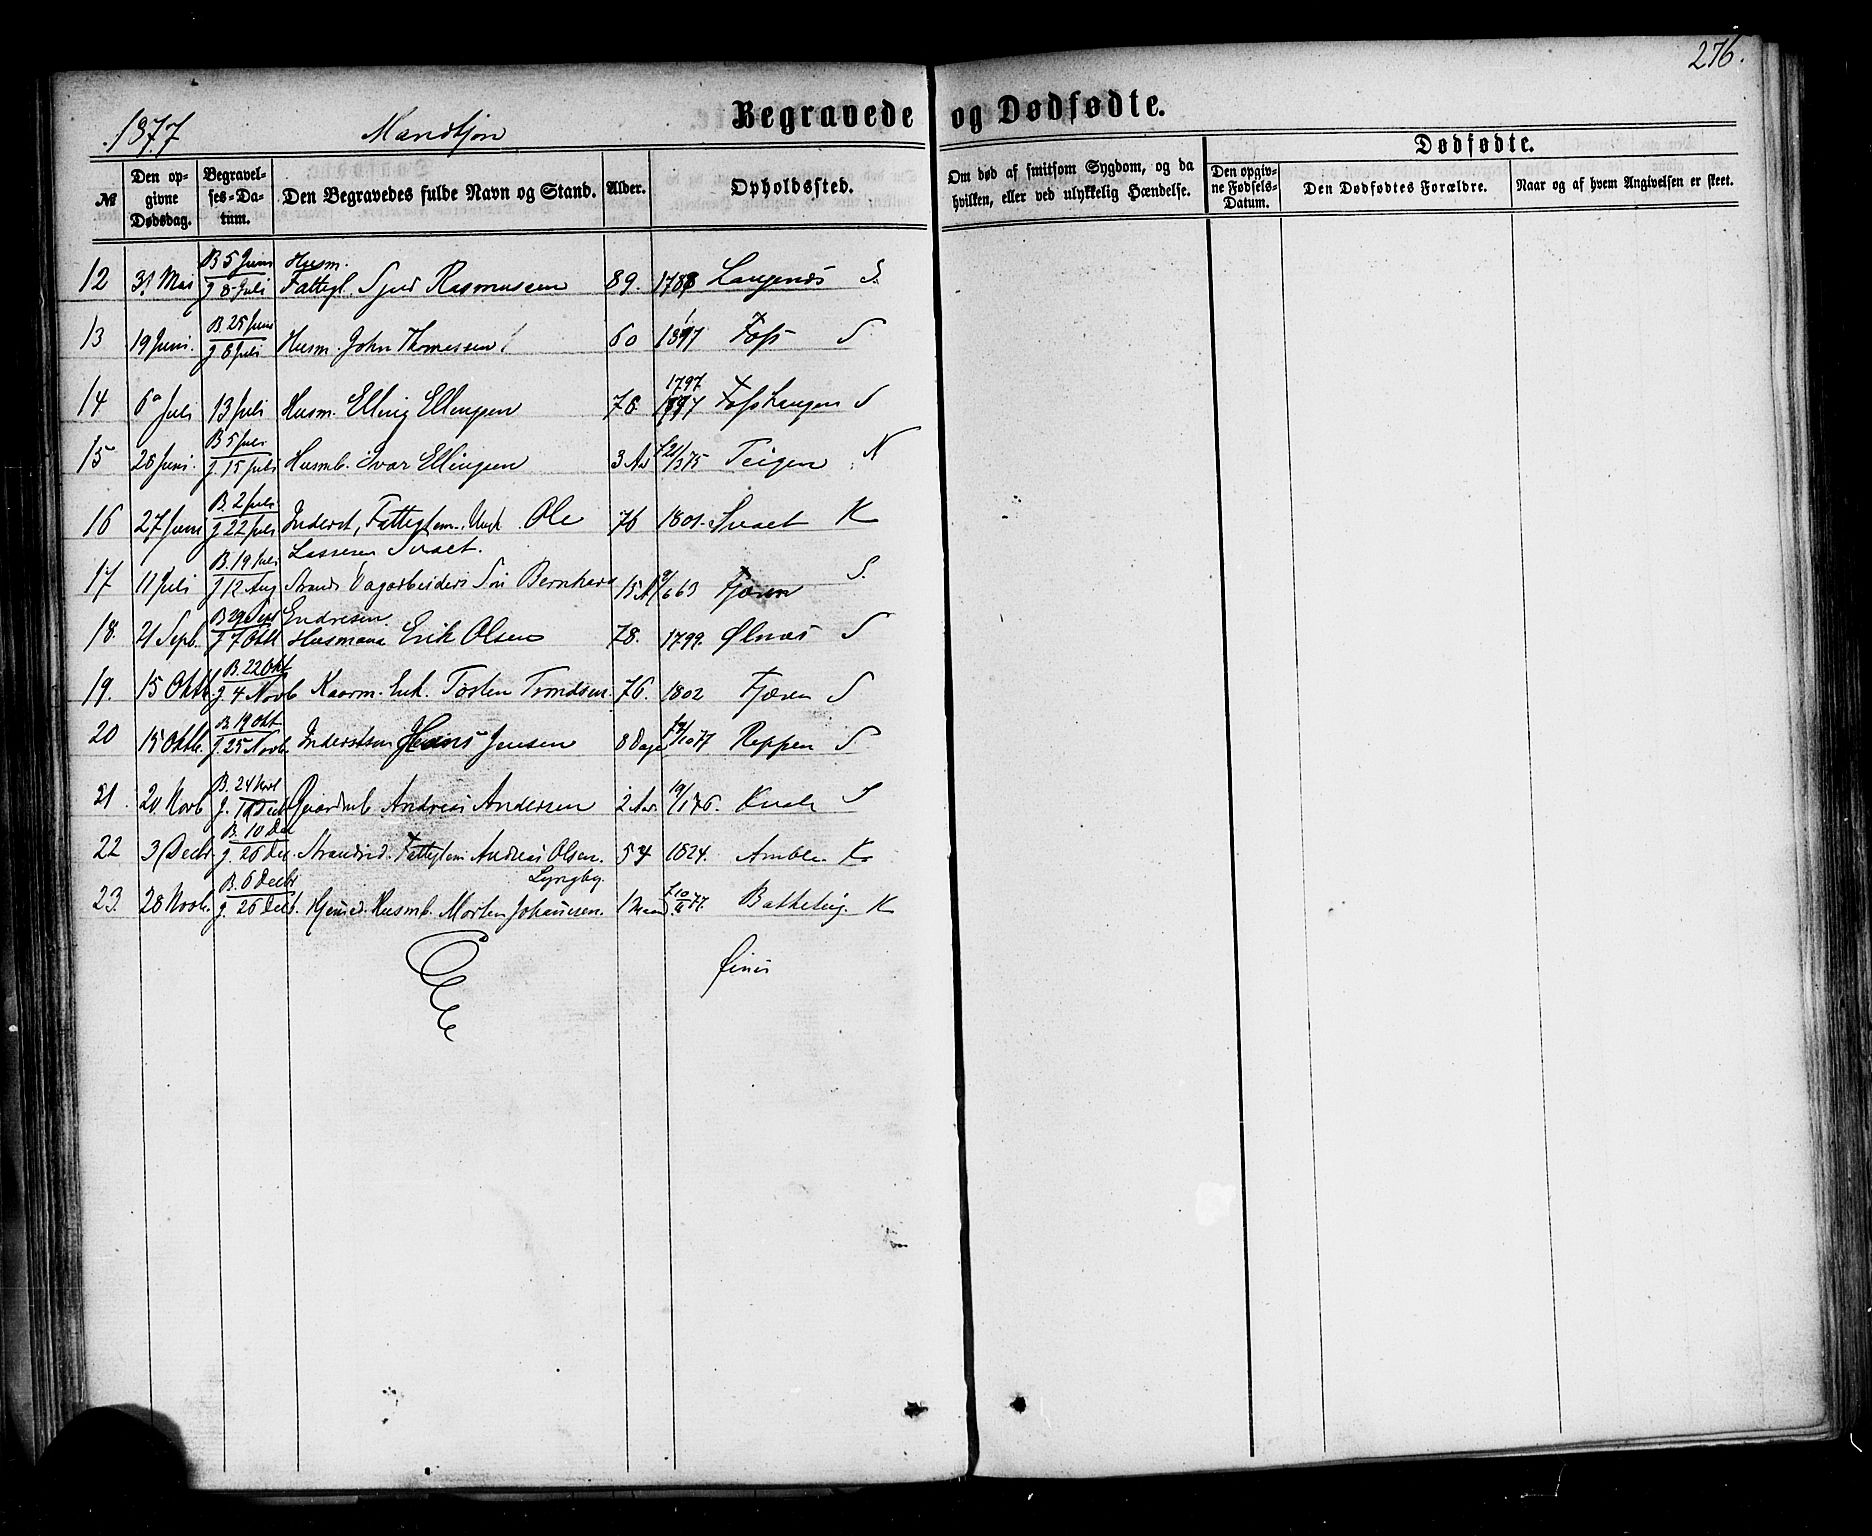 276.
1877 Mandkjøn
Begravede og Dødfødte.
№
Den opgivne Dødsdag.
Begravelses-Datum.
Den Begravedes fulde Navn og Stand.
Alder.
Opholdssted.
Om død af smitsom Sygdom, og da hvilken, eller ved ulykkelig Hændelse.
Dødfødte.
Den opgivne Fødsels-Datum.
Den Dødfødtes Forældre.
Naar og af hvem Angivelsen er skeet.
B 5 Juni Husm.
12 31 Mai J 8 Juli Fattigl. Sjur Rasmussen 89. 1788 Langenæs S.
B. 25 Juni
13 19 Juni. J 8 Juli Husm. John Thomassen 60 Foss S
1797
14 6 Juli 13 Juli Husm. Elling Ellingsen Foss S
B 5 Juli
15 28 Juni. J. 15 Juli Husmb. Ivar Ellingsen 3 Aar Teigen N
B. 2 Juli
16 27 Juni J 22 Juli Inderst, Fattiglem. Ole 76 1801. Svaet K
Lassesen Svaet.
B. 19 Juli
17 11 Juli J 12 Aug Strands Dagarbeiders Søn Bernhard 15 A 9/6 63 Fjæren S.
Endresen
B 29 Sept
18. 21 Septb. J 7 Oktb Husmand Erik Olsen 78. 1799. Ølnæs S
B. 22 Okt
19. 15 Oktb. J. 4 Novb Kaarm. Enk. Torsten Trondsen. 76. 1802 Fjæren S
B. 19 Okt
20 15 Oktb. J. 25 Novb. Inderstsøn Hans Jensen 8 Dage /10 77 Reppen S
B. 24 Novb
21. 20 Novb J. Decb Gaardmb Andreas Andersen 2 Aar. 19/1 76. Kvale S
B. 10 Dec
22 3 Decbr J. 26 Dec. Strandsid. Fattiglem Andreas Olsen. 54 1824. Amble K
Lyngby.
B. 6 Decbr
23. 28 Novb. J. 26 Decb. Husmb. Morten Johannesen. 1 Maaned 77. Bakketeig. K
Finis